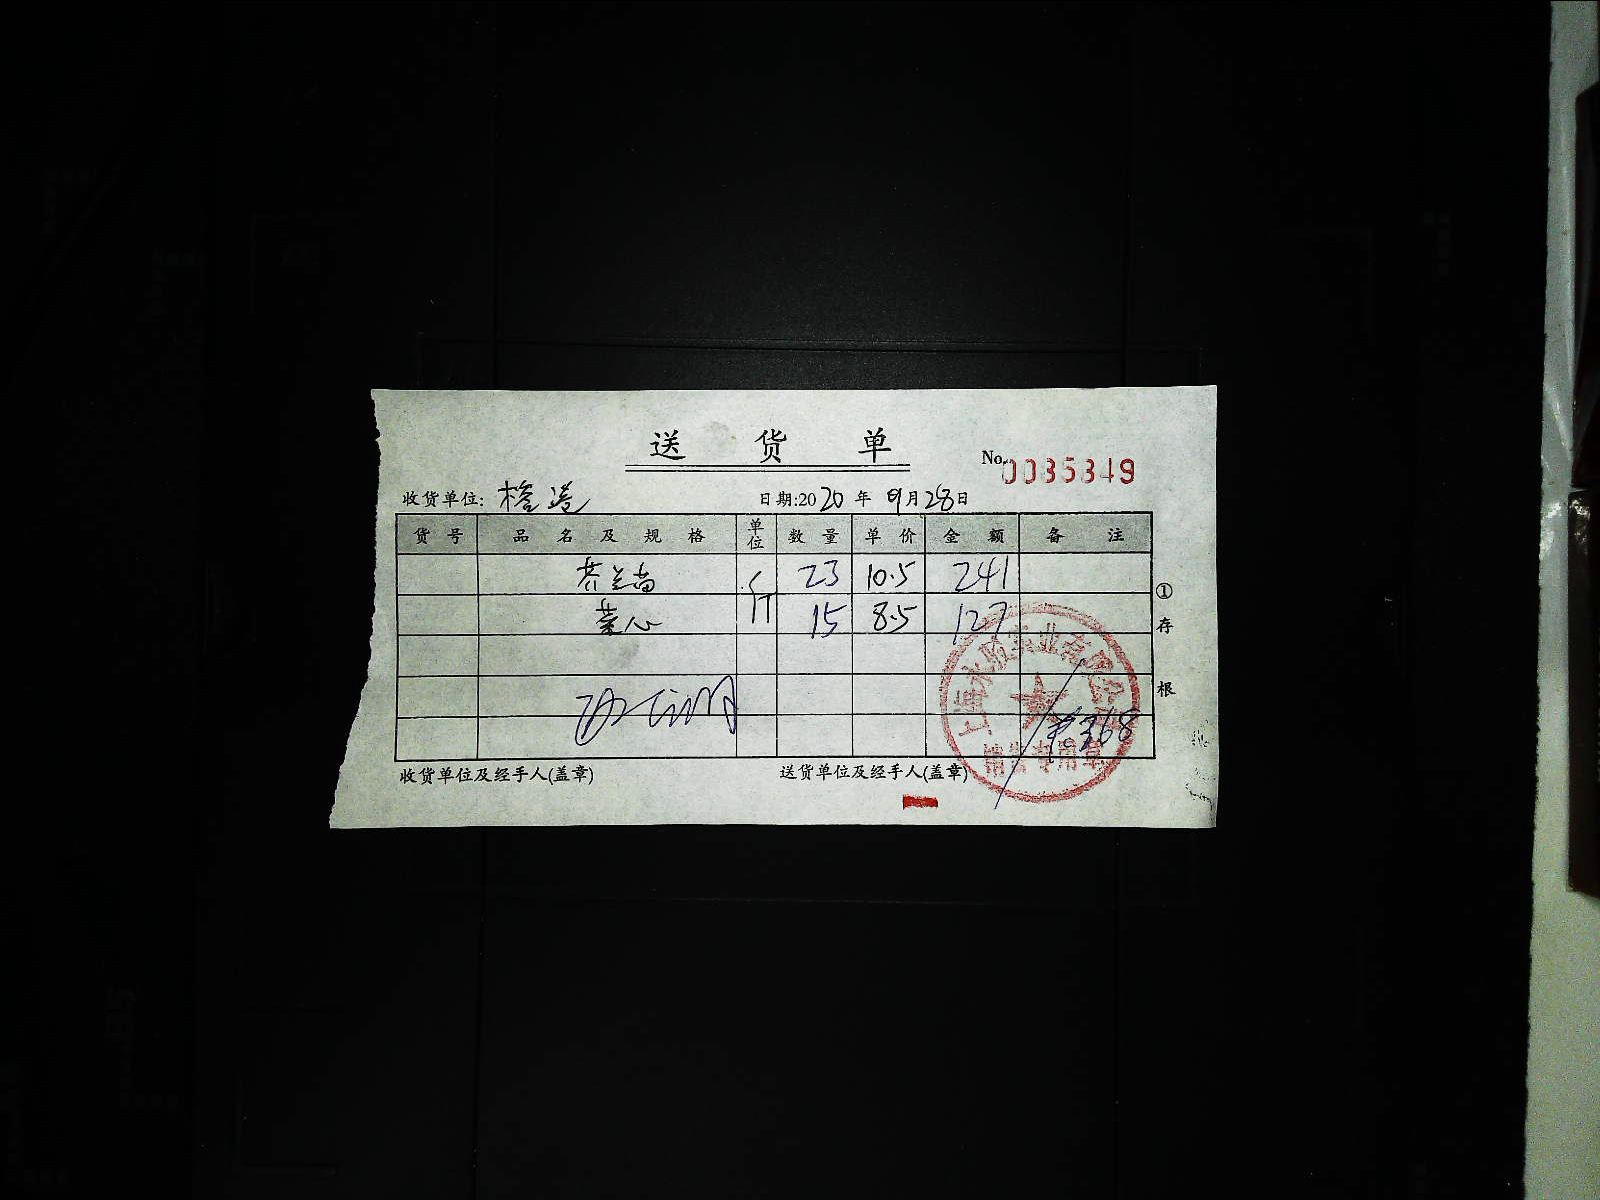 送 货 单
No. 0035349
收货单位: 日期:2020年 9月28日
货号 品名及规格 单位 数量 单价 金额 备注
芥兰苗 斤 23 10.5 241
菜心 15 8.5 127
①存根
上海永 实业有限公司
销售专用章
368
收货单位及经手人(盖章) 送货单位及经手人(盖章)